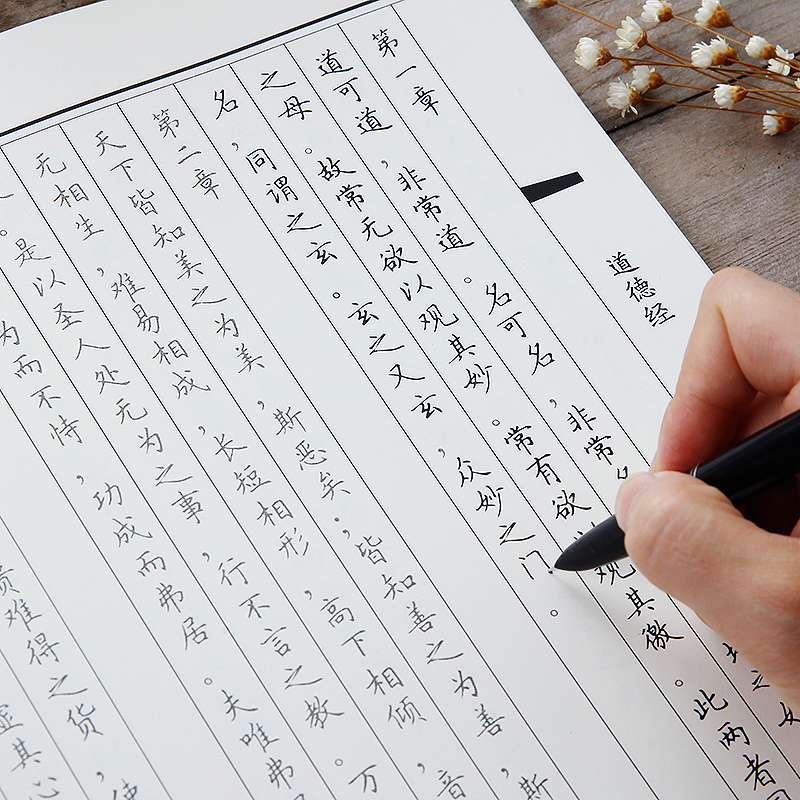 道德经
第一章
道可道 非常道。名可名,非常
之
之母。故常无欲以观其妙。常有欲 观其徼。此两者同
名,同谓之玄。玄之又玄,众妙之门。
第二章
天下皆知美之为美,斯恶矣。;皆知善之为善,斯
无相生,难易相成,长短相形,高下相倾,音
。是以圣人处无为之事,行不言之教。万
为而不恃,功成而弗居。夫唯弗
贵难得之货,使
虚其心